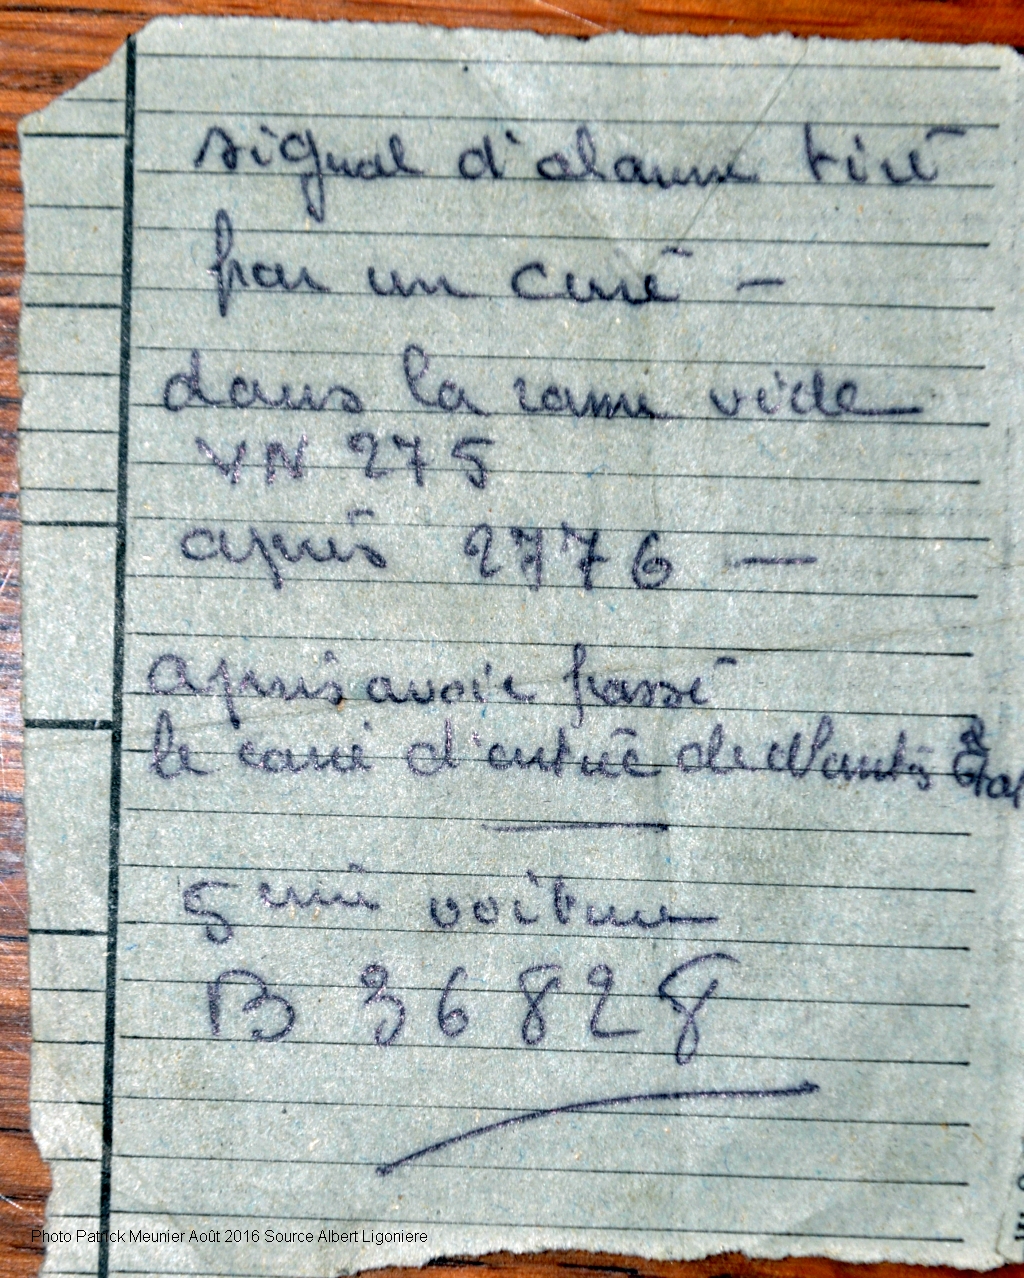 signal d'alarme tiré
par un curé —
dans la rame vide
VN 275
après 2776 —
après avoir passé
le carré d'entrée de Nantes
5ème voiture
B 36828
Photo Patrick Meunier Août 2016 Source Albert Ligoniere